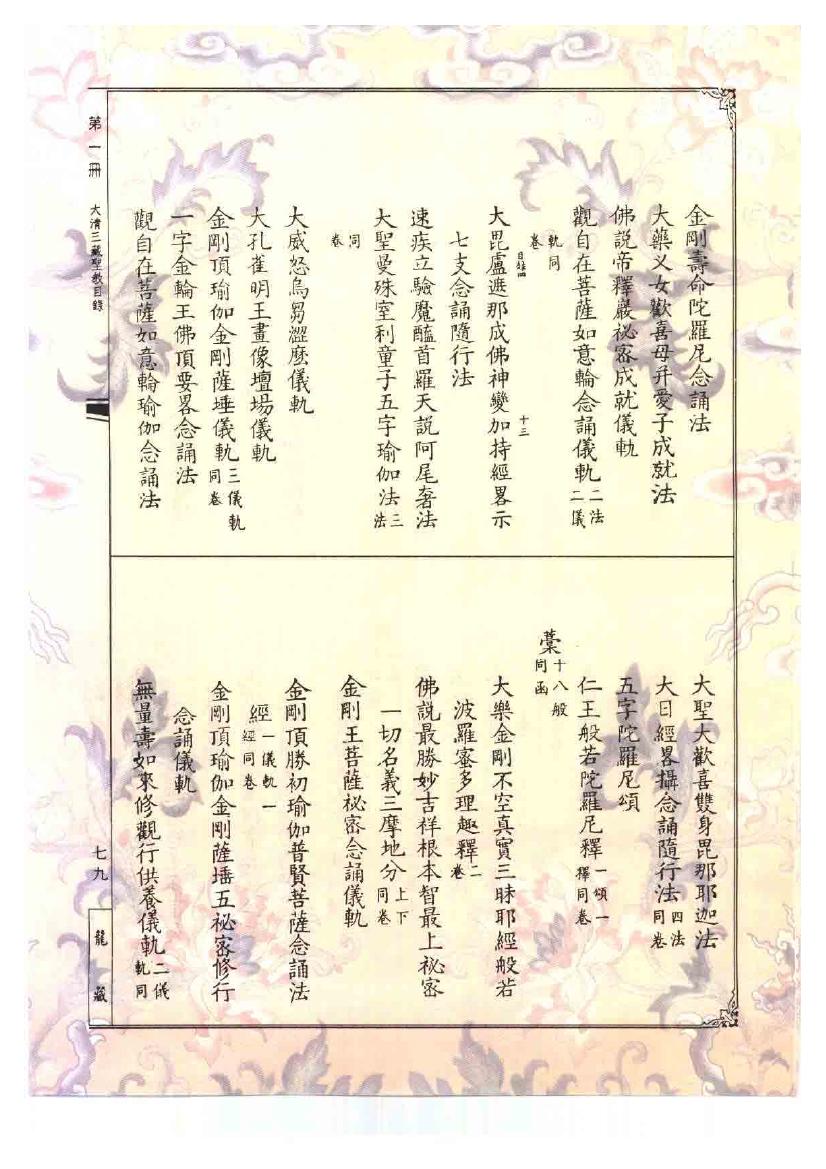 金剛壽命陀羅尼念誦法
大藥叉女歡喜母并愛子成就法
佛說帝釋巖祕密成就儀軌
觀自在菩薩如意輪念誦儀軌二法二儀
軌同卷
大毘盧遮那成佛神變加持經畧示
七支念誦隨行法
十三
速疾立驗魔醯首羅天說阿尾奢法
大聖曼殊室利童子五字瑜伽法三法
同卷
大威怒烏芻澀麼儀軌
大孔雀明王畫像壇場儀軌
金剛頂瑜伽金剛薩埵儀軌三儀軌同卷
一字金輪王佛頂要畧念誦法
觀自在菩薩如意輪瑜伽念誦法
大聖大歡喜雙身毘那耶迦法
大日經畧攝念誦隨行法四法同卷
五字陀羅尼頌
仁王般若陀羅尼釋一頌一釋同卷
藁十八般同函
大樂金剛不空真實三昧耶經般若
波羅蜜多理趣釋二卷
佛說最勝妙吉祥根本智最上祕密
一切名義三摩地分上下同卷
金剛王菩薩祕密念誦儀軌
金剛頂勝初瑜伽普賢菩薩念誦法
經一儀軌一經同卷
金剛頂瑜伽金剛薩埵五祕密修行
念誦儀軌
無量壽如來修觀行供養儀軌二儀軌同
第一冊 大清三藏聖教目錄
七九
龍藏